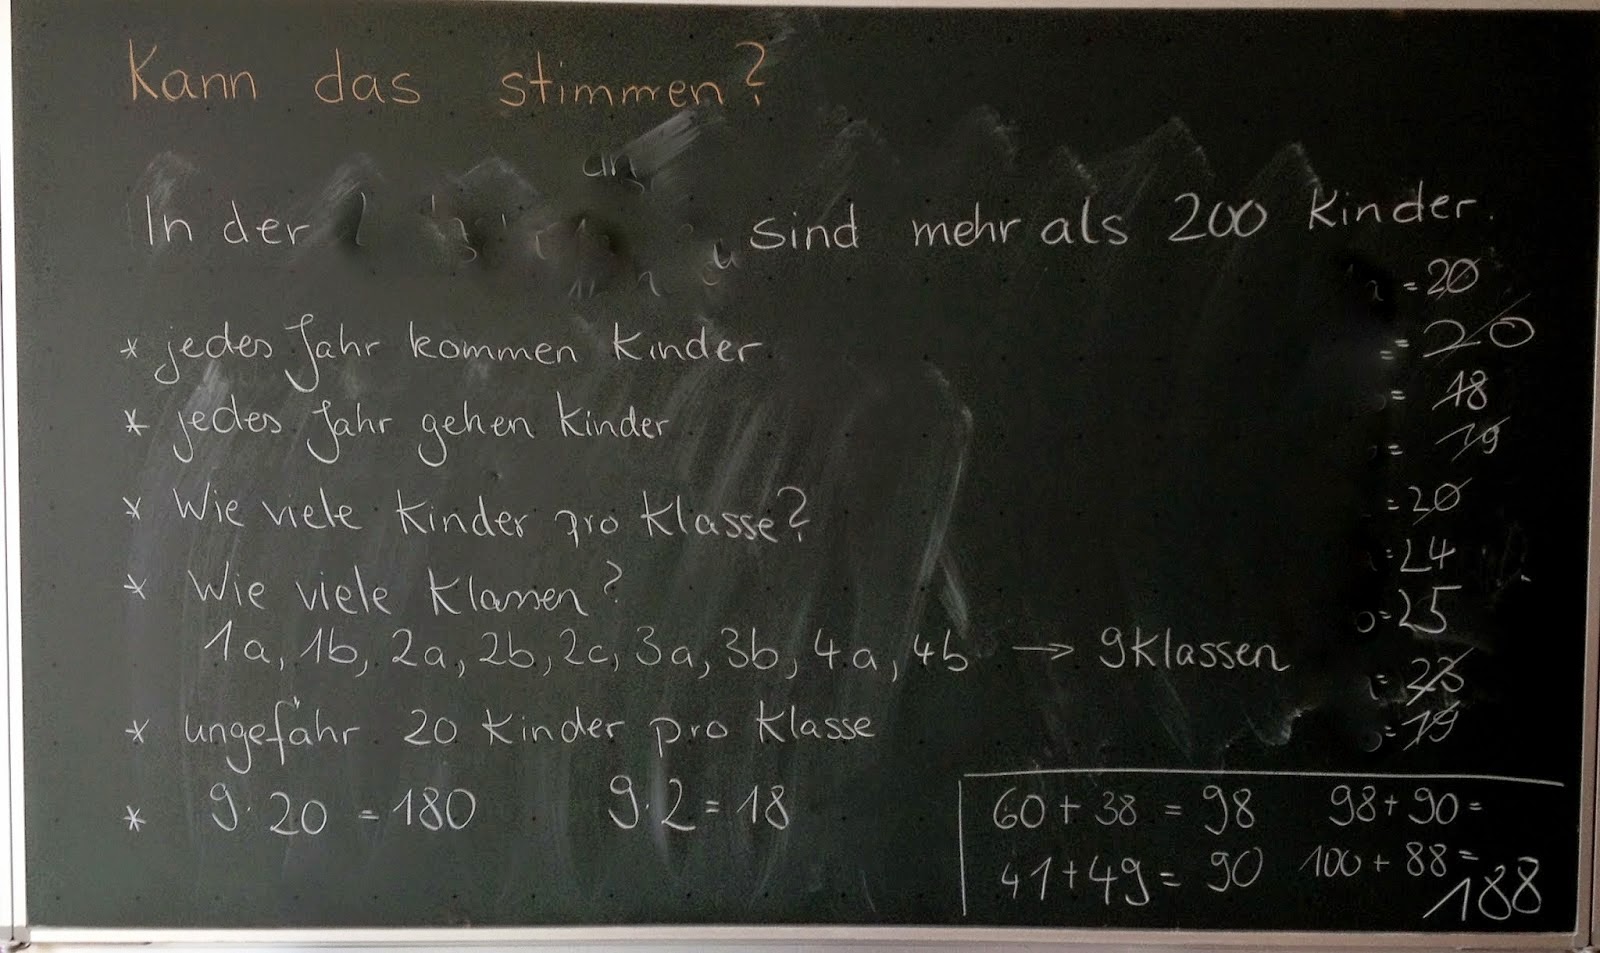 Kann das stimmen?
In der sind mehr als 200 Kinder.
= 20
* jedes Jahr kommen Kinder
= 20
= 18
* jedes Jahr gehen Kinder
= 19
* Wie viele Kinder pro Klasse?
= 20
= 24
* Wie viele Klassen?
= 25
1a, 1b, 2a, 2b, 2c, 3a, 3b, 4a, 4b → 9 Klassen
= 23
* ungefähr 20 Kinder pro Klasse
= 19
* 9·20 = 180 9·2 = 18
60 + 38 = 98 98 + 90 =
41 + 49 = 90 100 + 88 =
188